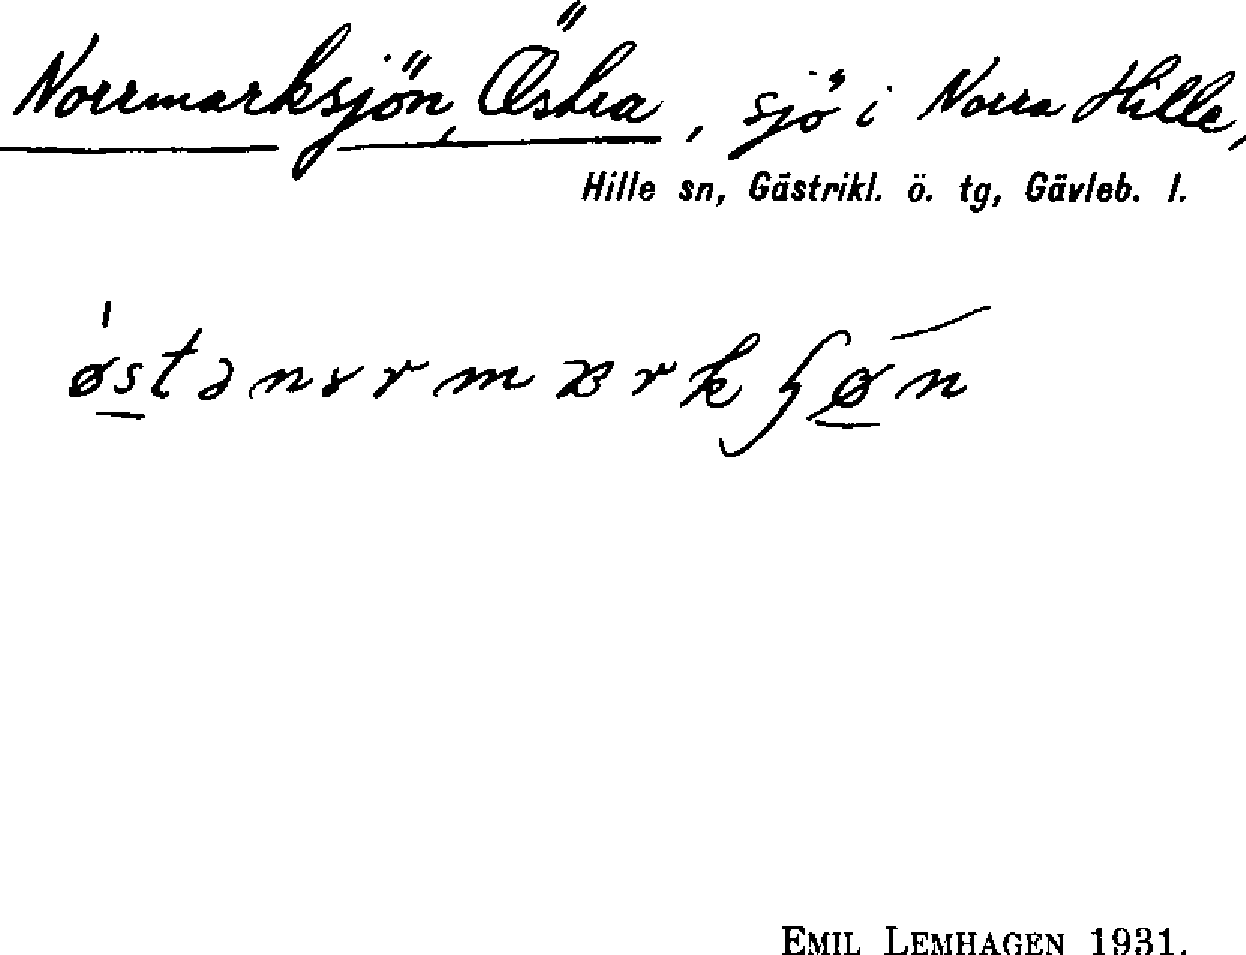 Norrmarksjön, Östra, sjö i Norra Hille,
Hille sn, Gästrikl. ö. tg, Gävleb. l.
EMIL LEMHAGEN 1931.